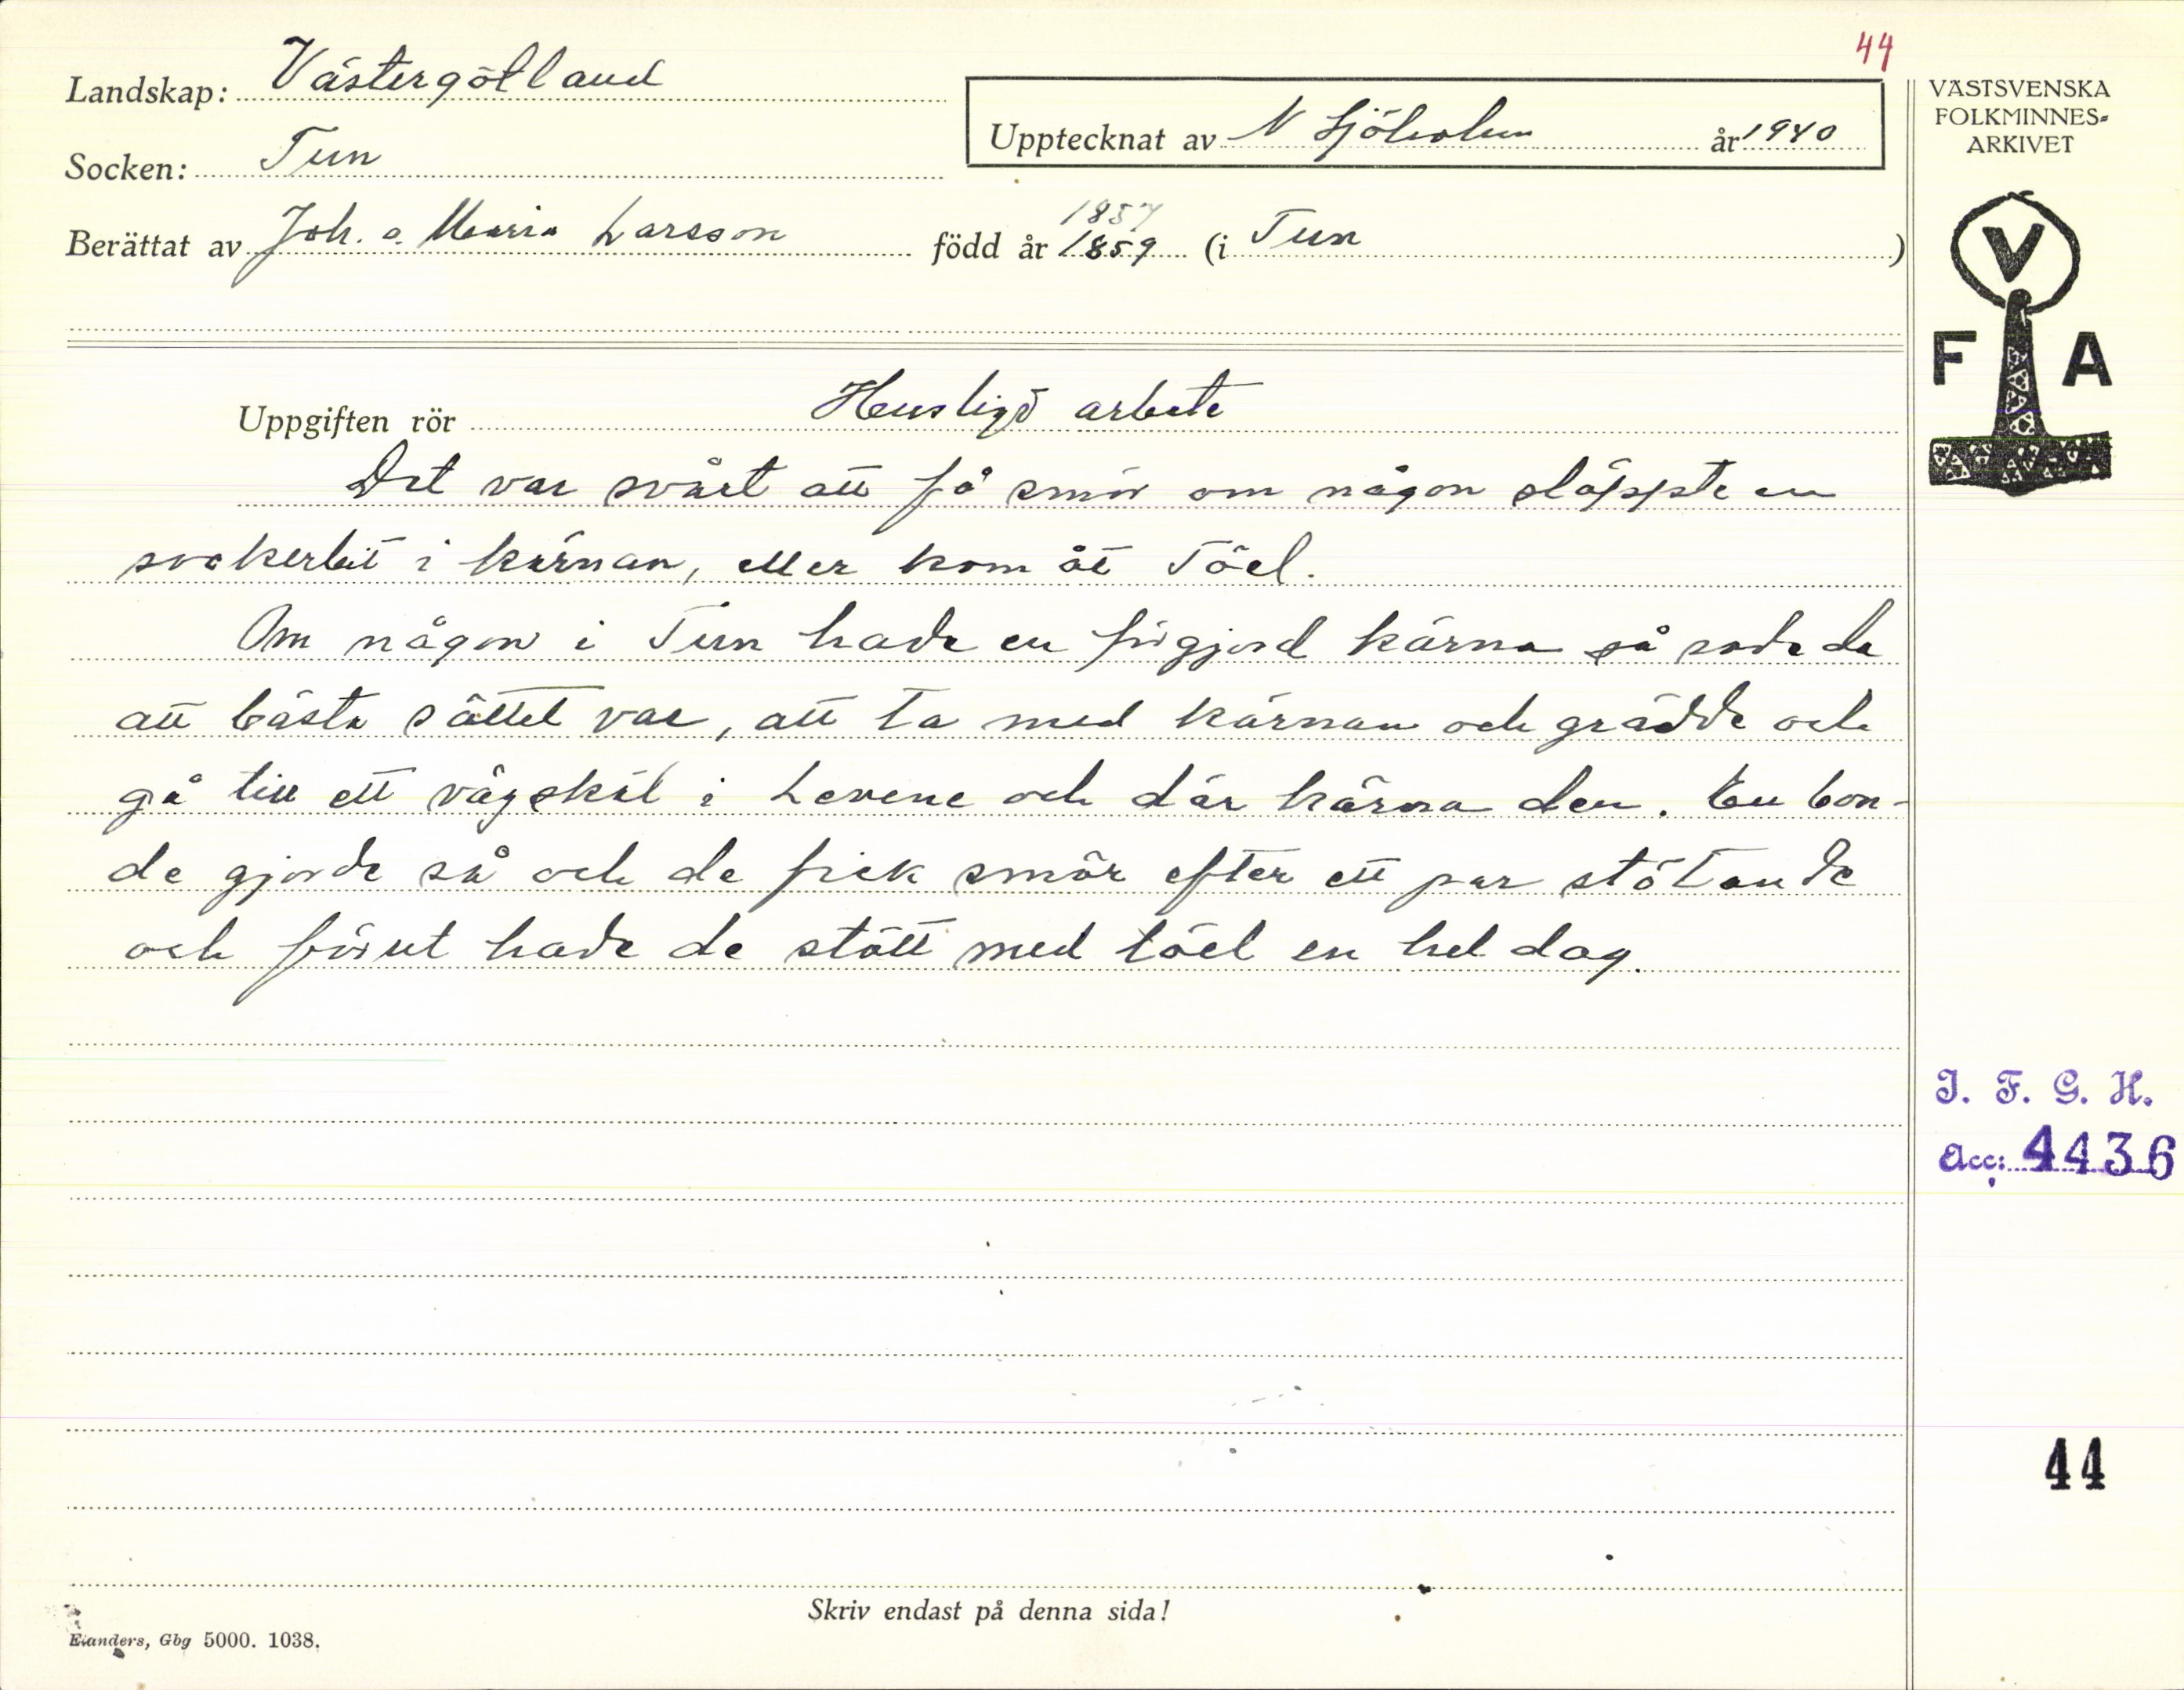 44
Landskap: Västergötland
Upptecknat av N Sjöholm år 1940
VÄSTSVENSKA
FOLKMINNES-
ARKIVET
Socken: Tun
1857
Berättat av Joh. o. Maria Larsson född år 1859 (i Tun)
V
F A
Uppgiften rör Husligt arbete
Det var svårt att få smör om någon släppte en
sockerbit i kärnan, eller kom åt töel.
Om någon i Tun hade en förgjord kärna så sade de
att bästa sättet var, att ta med kärnan och grädde och
gå till ett vägskäl i Levene och där kärna den. En bon-
de gjorde så och de fick smör efter ett par stötande
och förut hade de stött med töel en hel dag.
I. F. G. H.
Acc: 4436
44
Skriv endast på denna sida!
Elanders, Gbg 5000. 1038.